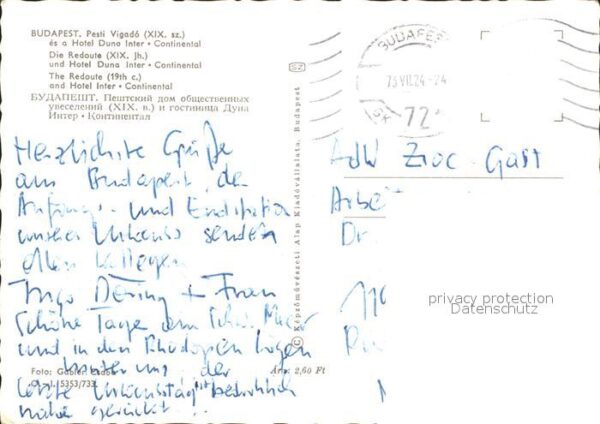 BUDAPEST. Pesti Vigadó (XIX. sz.)
és a Hotel Duna Inter • Continental
Die Redoute (XIX. Jh.)
und Hotel Duna Inter • Continental
The Redoute (19th c.)
and Hotel Duna Inter • Continental
БУДАПЕШТ. Пештский дом общественных
увеселений (XIX. в.) и гостиница Дуна
Интер • Континентал
Herzlichste Grüße
aus Budapest, der
Anfangs- und Endstation
unseres Urlaubs senden
allen Kollegen
Ingo + Frau
Schöne Tage am Meer
und in den Rhodopen liegen
hinter uns, der
letzte Urlaubstag ist bedrohlich
nahe gerückt...
Foto: Gabler Csaba
5353/733
Ára: 2,60 Ft
© Képzőművészeti Alap Kiadóvállalata, Budapest
SZ
BUDAPEST
73 VII.24-24
72
AdW
Gast
Arbei
Dr.
privacy protection
Datenschutz